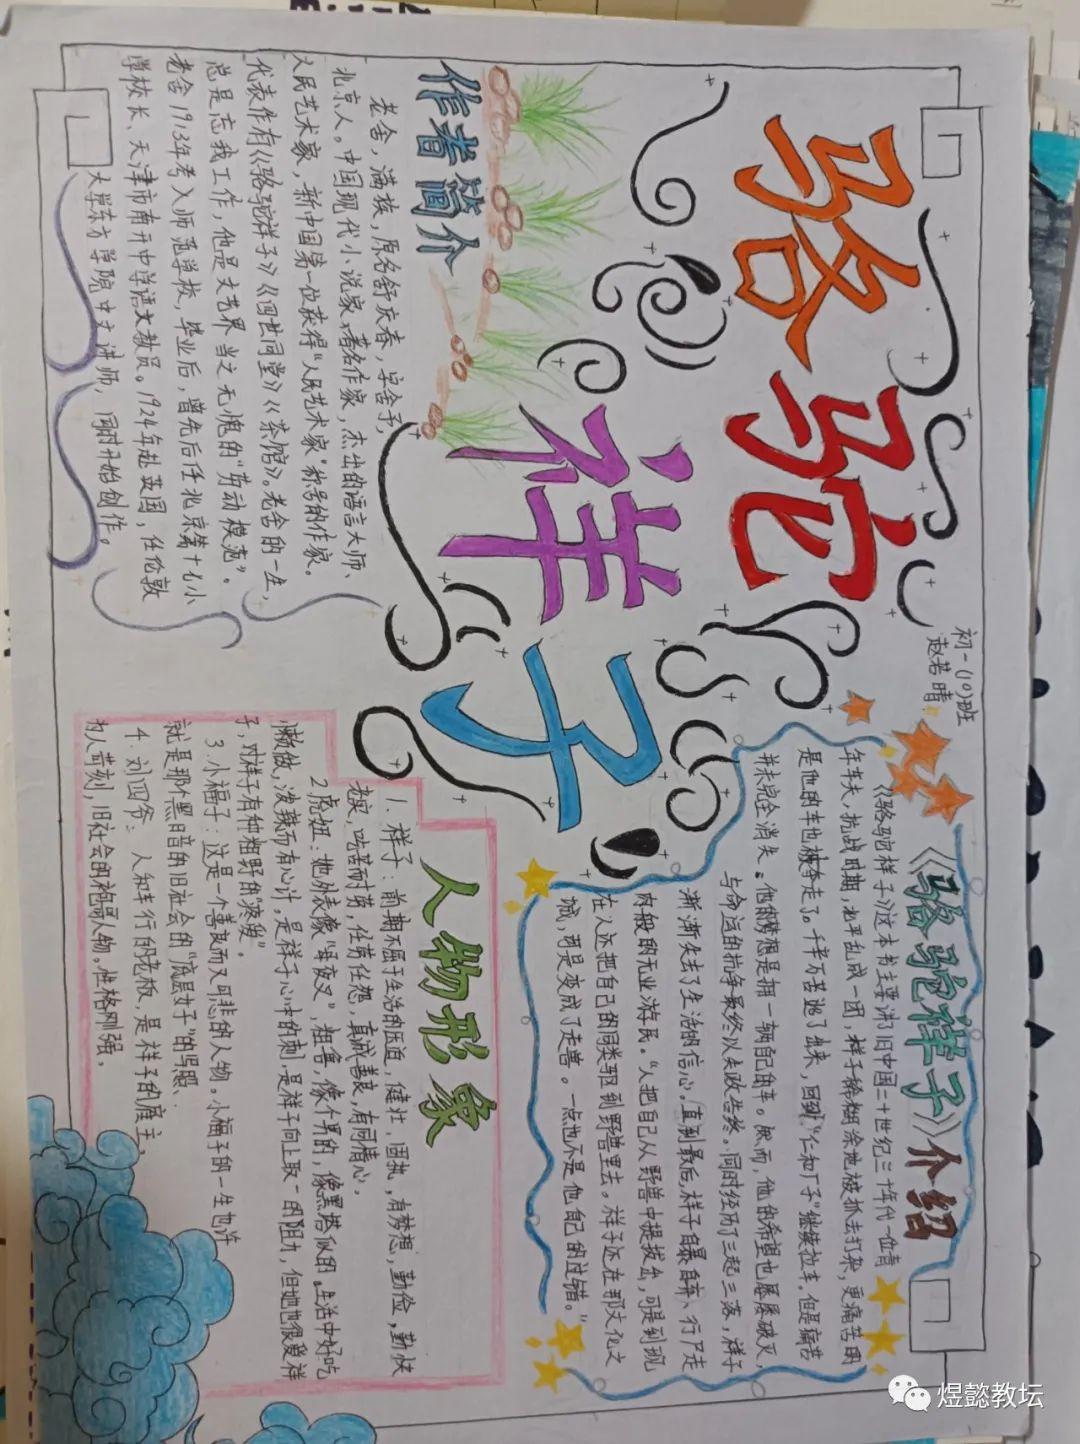 骆驼
祥子
初一(10)班
赵若晴
作者简介
老舍，满族，原名舒庆春，字舍予，
北京人。中国现代小说家、著名作家，杰出的语言大师、
人民艺术家，新中国第一位获得“人民艺术家”称号的作家。
代表作有《骆驼祥子》《四世同堂》《茶馆》。老舍的一生，
总是忘我工作，他是文艺界当之无愧的“劳动模范”。
老舍1913年考入师范学校，毕业后，曾先后任北京第十七小
学校长、天津市南开中学语文教员。1924年赴英国，任伦敦
大学东方学院中文讲师，同时开始创作。
《骆驼祥子》介绍
《骆驼祥子》这本书主要讲了旧中国二十世纪三十年代一位青
年车夫，抗战时期，北平乱成一团，祥子稀糊涂地被抓去打杂，更痛苦的
是他的车也被夺走了。千辛万苦逃了出来，回到“仁和厂子”继续拉车。但是痛苦
并未完全消失。他的梦想是拥一辆自己的车。然而，他的希望也屡屡破灭，
与命运的抗争最终以失败告终。同时经历了三起三落，祥子
渐渐失去了生活的信心。直到最后，祥子自暴自弃、行尸走
肉般的无业游民。“人把自己从野兽中提拔出，可是到现
在人还把自己的同类驱到野兽里去。祥子还在那文化之
城，可是变成了走兽。一点也不是他自己的过错。”
人物形象
1. 祥子：前期不屈于生活的压迫，健壮，固执，有梦想，勤俭，勤快
老实，吃苦耐劳，任劳任怨，真诚善良，有同情心。
2. 虎妞：她外表像“母夜叉”，粗鲁，像个男的，像黑塔似的。生活中好吃
懒做，泼辣而有心计，是祥子心中的刺，是祥子向上取一的阻力，但她也很爱祥
子，对祥子有种粗野的“疼爱”。
3. 小福子：这是一个善良而又可悲的人物。小福子的一生也许
就是那个黑暗的旧社会的“底层女子”的写照、
4. 刘四爷：人和车行的老板，是祥子的雇主，
为人苛刻，旧社会的袍哥人物。性格刚强。
煜懿教坛